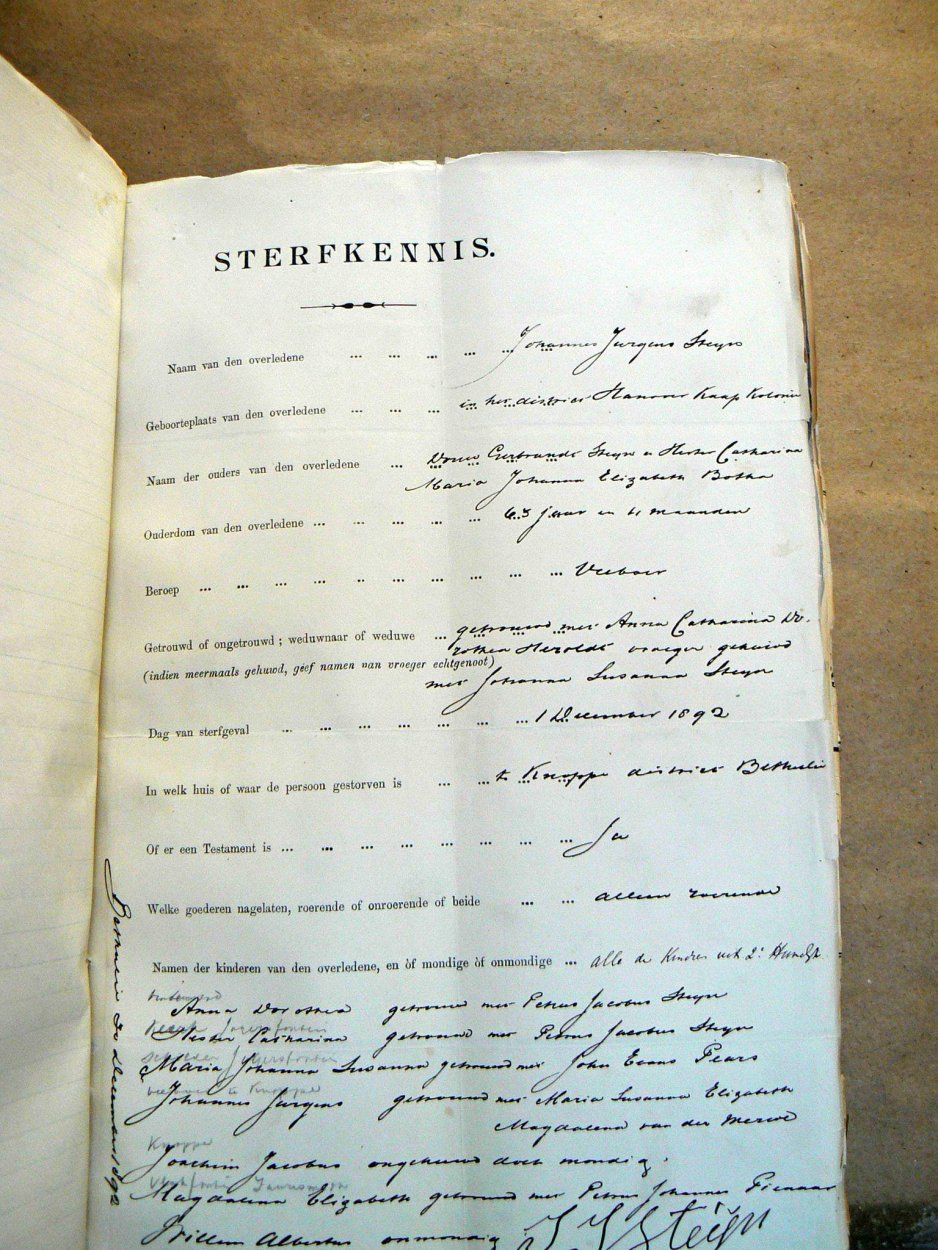 STERFKENNIS.
Naam van den overledene ... ... ... ... ... Johannes Jurgens Steyn
Geboorteplaats van den overledene ... ... ... in het district Hanover Kaap Kolonie
Naam der ouders van den overledene ... Douw Gerbrandt Steyn en Hester Catharina
Maria Johanna Elizabeth Botha
Ouderdom van den overledene ... ... ... ... ... 63 jaar en maanden
Beroep ... ... ... ... ... ... ... ... ... ... Veeboer
Getrouwd of ongetrouwd ; weduwnaar of weduwe ... getrouwd met Anna Catharina Do-
(indien meermaals gehuwd, geef namen van vroeger echtgenoot) rothea Heroldt vroeger gehuwd
met Johanna Susanna Steyn
Dag van sterfgeval ... ... ... ... ... ... ... 1 December 1892
In welk huis of waar de persoon gestorven is ... ... te Knoppe district Bethulie
Of er een Testament is ... ... ... ... ... ... ... ... Ja
Welke goederen nagelaten, roerende of onroerende of beide ... ... alleen roerende
Namen der kinderen van den overledene, en òf mondige òf onmondige ... alle de Kinders uit 2e
Anna Dorothea getrouwd met Petrus Jacobus Steyn
Hester Catharina getrouwd met Petrus Jacobus Steyn
Maria Johanna Susanna getrouwd met John Evans Pears
veeboer te Knoppe
Johannes Jurgens getrouwd met Maria Susanna Elizabeth
Magdalena van der Merwe
Knoppe
Joachim Jacobus ongehuwd doch mondig.
Magdalena Elizabeth getrouwd met Petrus Johannes Pienaar
Willem Albertus onmondig
J J Steijn
Bethulie 20 December 1892